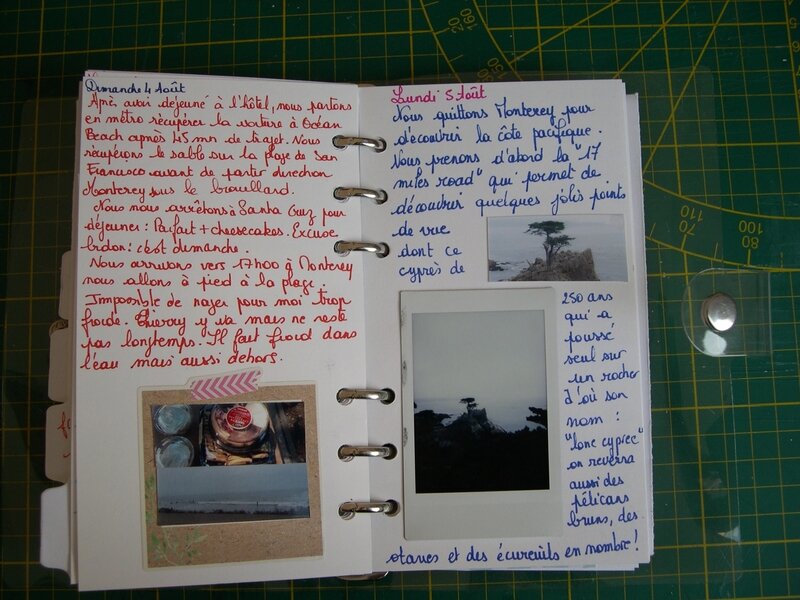 Dimanche 4 Août
Après avoir déjeuné à l'hôtel, nous partons
en métro récupérer la voiture à Océan
Beach après 45 mn de trajet. Nous
récupérons le sable sur la plage de San
Francisco avant de partir direction
Monterey sous le brouillard.
Nous nous arrêtons à Santa Cruz pour
déjeuner : Parfait + cheesecakes. Excuse
bidon : c'est dimanche.
Nous arrivons vers 17h00 à Monterey
nous allons à pied à la plage.
Impossible de nager pour moi trop
froide. Thierry y va mais ne reste
pas longtemps. Il fait froid dans
l'eau mais aussi dehors.
Lundi 5 Août
Nous quittons Monterey pour
découvrir la côte pacifique.
Nous prenons d'abord la "17
miles road" qui permet de
découvrir quelques jolis points
de vue
dont ce
cyprès de
250 ans
qui a
poussé
seul sur
un rocher
d'où son
nom :
"lone cypree"
on reverra
aussi des
pélicans
bruns, des
otaries et des écureuils en nombre !
160
150
140
130
120
80
70
60
50
40
30